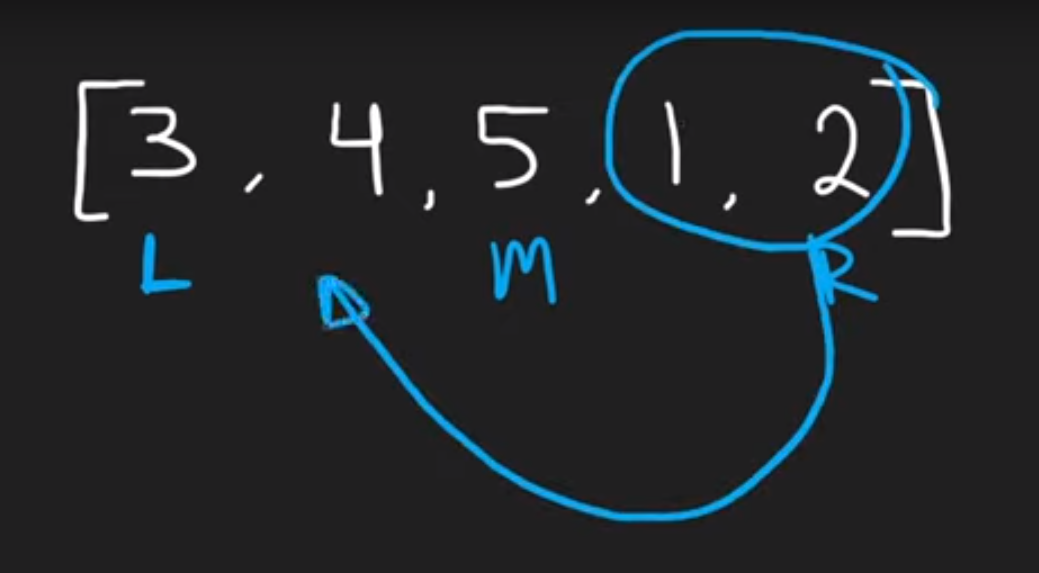 [3, 4, 5, 1, 2]
L M R